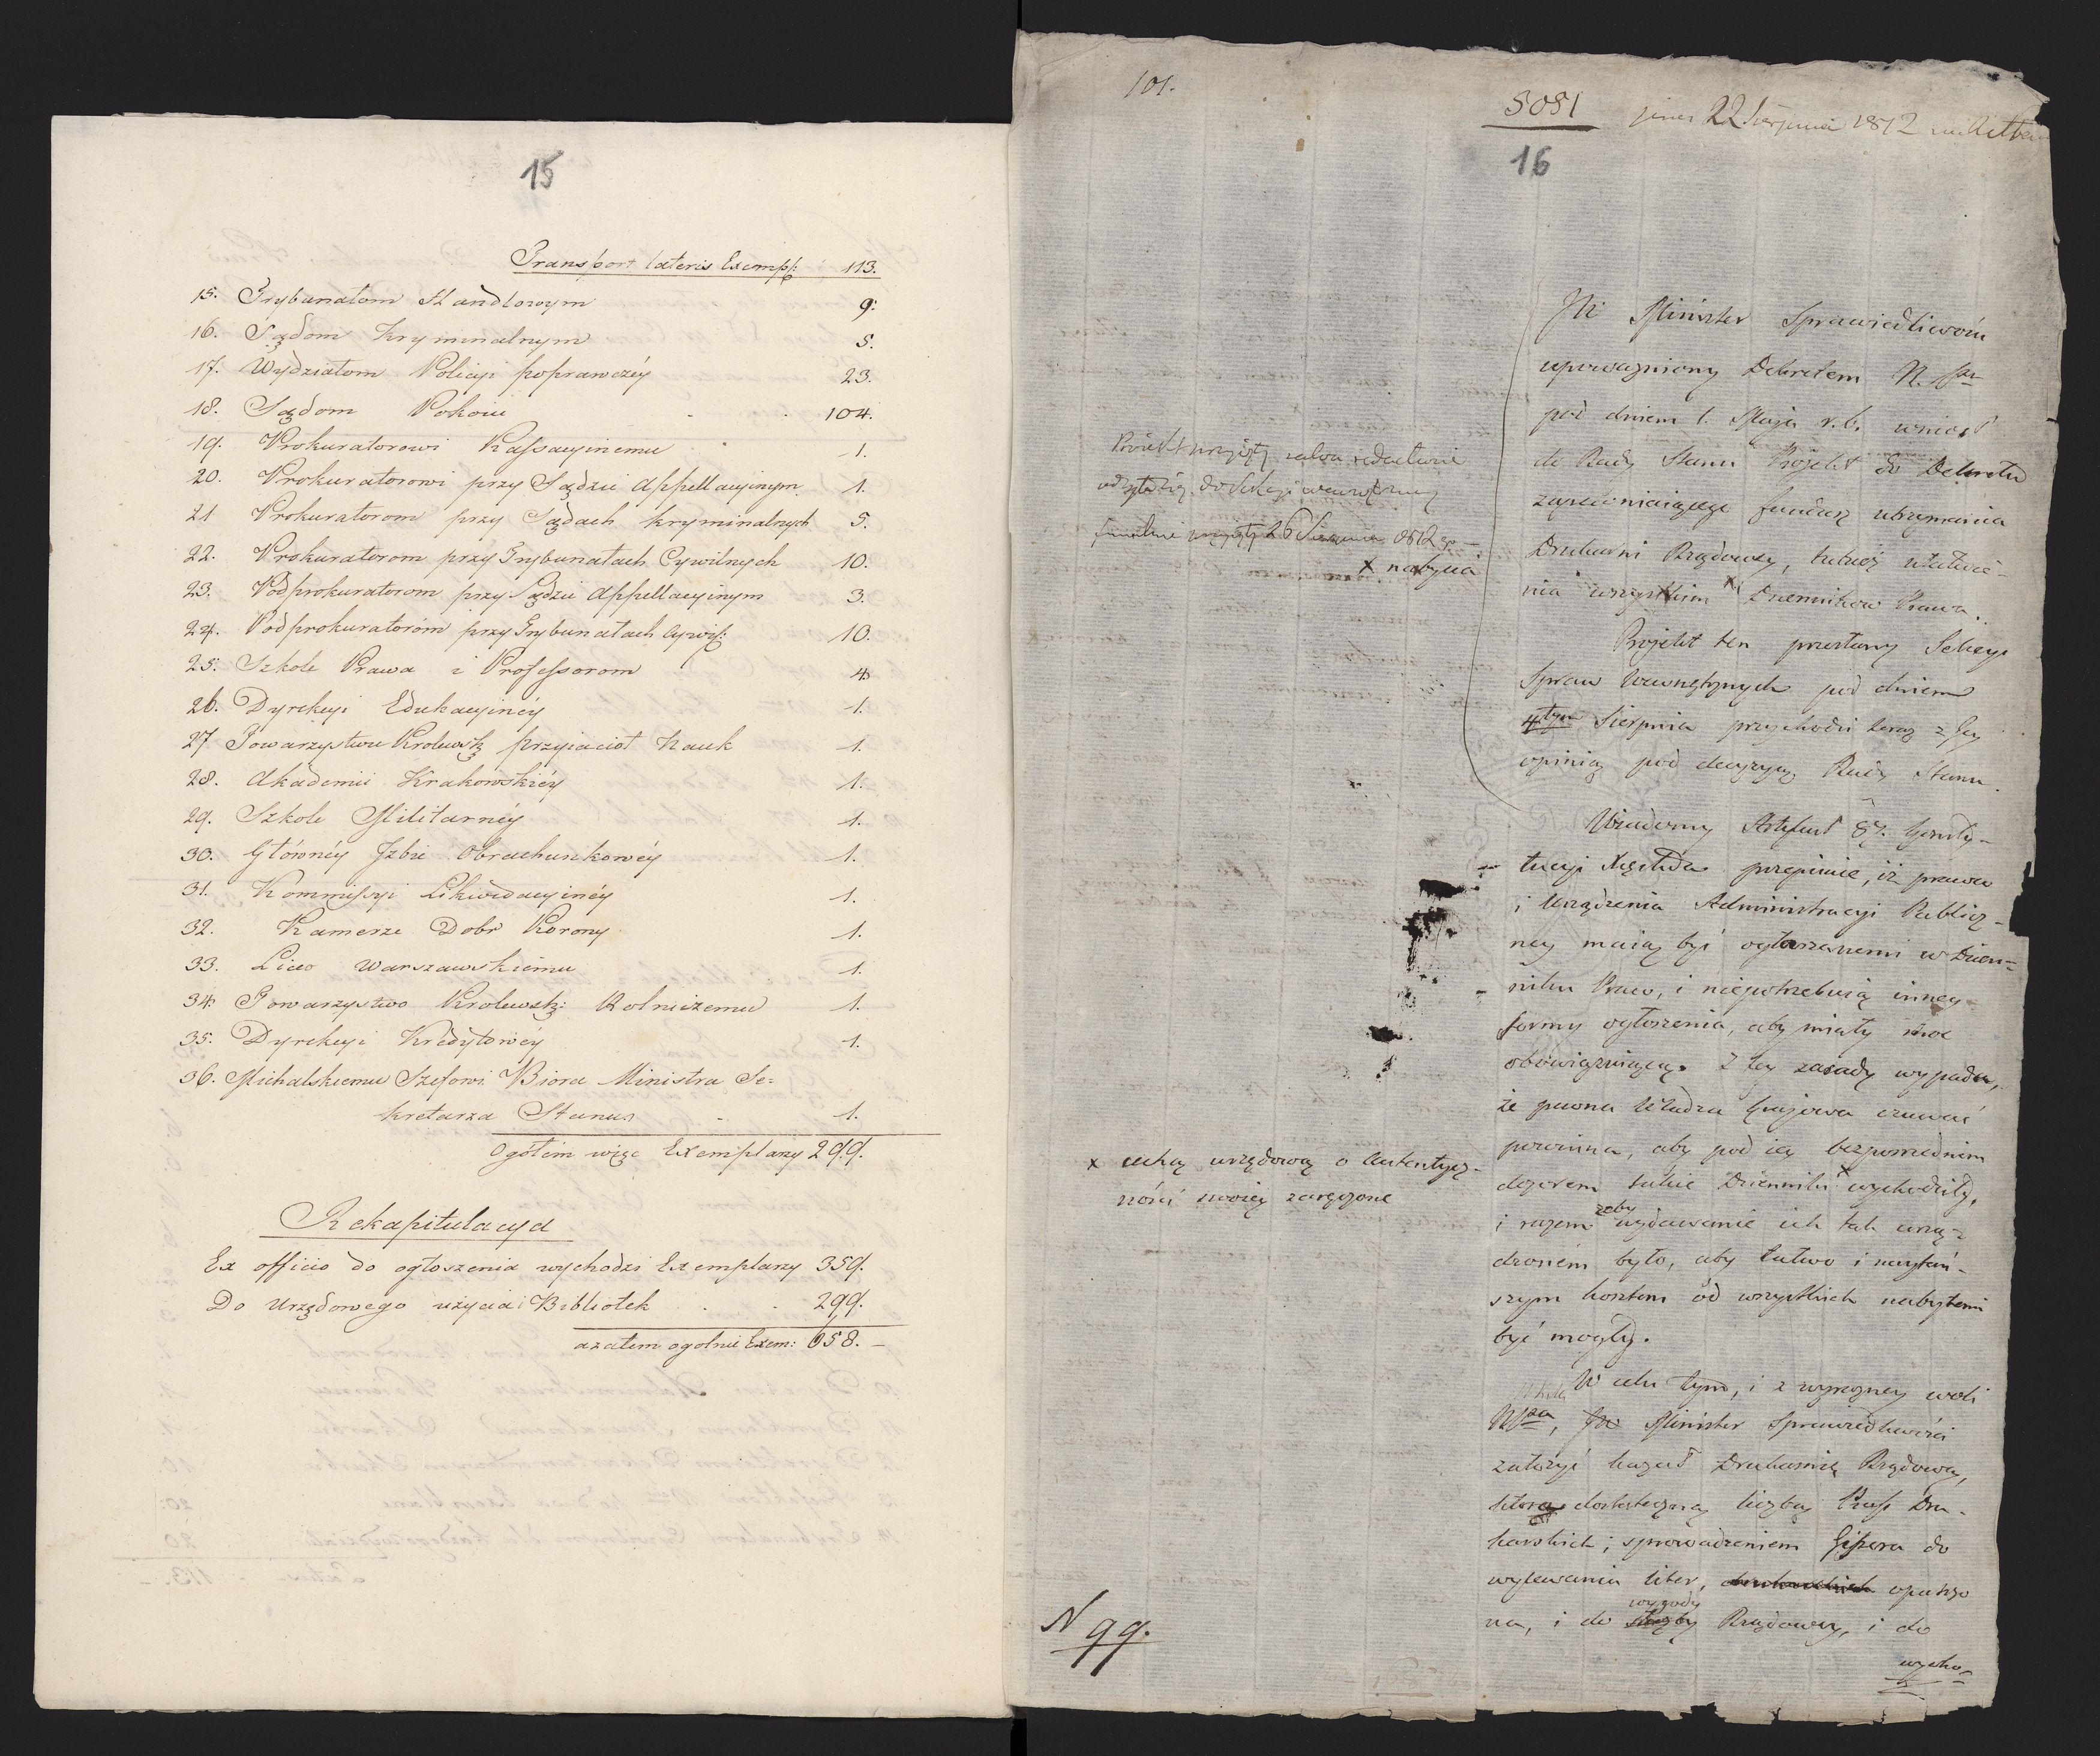 15
Transport lateris Exempl: 113.
15. Trybunałom Handlowym 9.
16. Sądom Kryminalnym 5.
17. Wydziałom Policyi poprawczéy 23.
18. Sądom Pokoiu 104.
19. Prokuratorowi Kassacyinemu 1.
20. Prokuratorowi przy Sądzie Appellacyinym 1.
21 Prokuratorom przy Sądach kryminalnych 5.
22. Prokuratorom przy Trybunałach Cywilnych 10.
23. Podprokuratorom przy Sądzie Appellacyinym 3.
24. Podprokuratoróm przy Trybunałach Cywil: 10.
25. Szkole Prawa i Professorom 4.
26. Dyrekcyi Edukacyinéy 1.
27. Towarzystwu Krolewsk: przyiaciół Nauk 1.
28. Akademii Krakowskiéy 1.
29. Szkole Militarnéy 1.
30. Głównéy Izbie Obrachunkowéy 1.
31. Kommissyi Likwidacyinéy 1.
32. Kamerze Dobr Korony 1.
33. Liceo Warszawskiému 1.
34. Towarzystwo Krolewsk: Rolniczemu 1.
35. Dyrekcyi Kredytowéy 1.
36. Michalskiemu Szefowi Biora Ministra Se=
kretarza Stanu 1.
Ogółem więc Exemplarzy 299.
Rekapitulacya
Ex officio do ogłoszenia wychodzi Exemplarzy 359.
Do Urzędowego użycia i Bibliotek 299.
azatem ogolnie Exem: 658. –
101.
5051 22 Sierpnia 1812
16
JW Minister Sprawiedliwości
upoważniony Dekretem N. Pa
pod dniem 1. Maja r. b. wniósł
do Rady Stanu Projekt do Dekretu
zapewniaiącego fundusz utrzymania
Drukarni Rządowey, tudzież ułatwie-
nia wszystkim x Dzienników Prawa.
Projekt przyięty salva redactione
odsyła się do Sekcyi wewnętrzney
finalnie przyięty 26 Sierpnia 1812 go –
x nabycia
Projekt ten przesłany Sekcyi
Spraw Wewnętrznych pod dniem
4tym Sierpnia przychodzi teraz z Jey
opinią pod decyzyą Rady Stanu.
Wiadomy Artykuł 87. Konsty-
tucyi Xięstwa przepisuie, iż prawa
i Urządzenia Administracyi Publicz-
ney maią być ogłaszanemi w Dzien=
niku Praw, i niepotrzebuią inney
formy ogłoszenia, aby miały moc
obowiązuiącą. Z tey zasady wypada,
że pewna Władza krajowa czuwać
powinna, aby pod iey bezpośrednim
dozorem takie Dzienniki x wychodziły,
x cechą urzędową o autentycz-
ności swoiey zaręczone
i razem żeby wydawanie ich tak urzą-
dzoném było, aby łatwo i naytań-
szym kosztem od wszystkich nabytemi
być mogły.
W celu tym, i z wyrazney woli
NPana, JW Minister Sprawiedliwości
założyć kazał Drukarnię Rządową,
która dostateczną liczbą Prass Dru-
karskich, sprowadzeniem Gisera do
wylewania liter, opatrzo
na, i do wygody służby Rządowey, i do
wyko=
N 99.